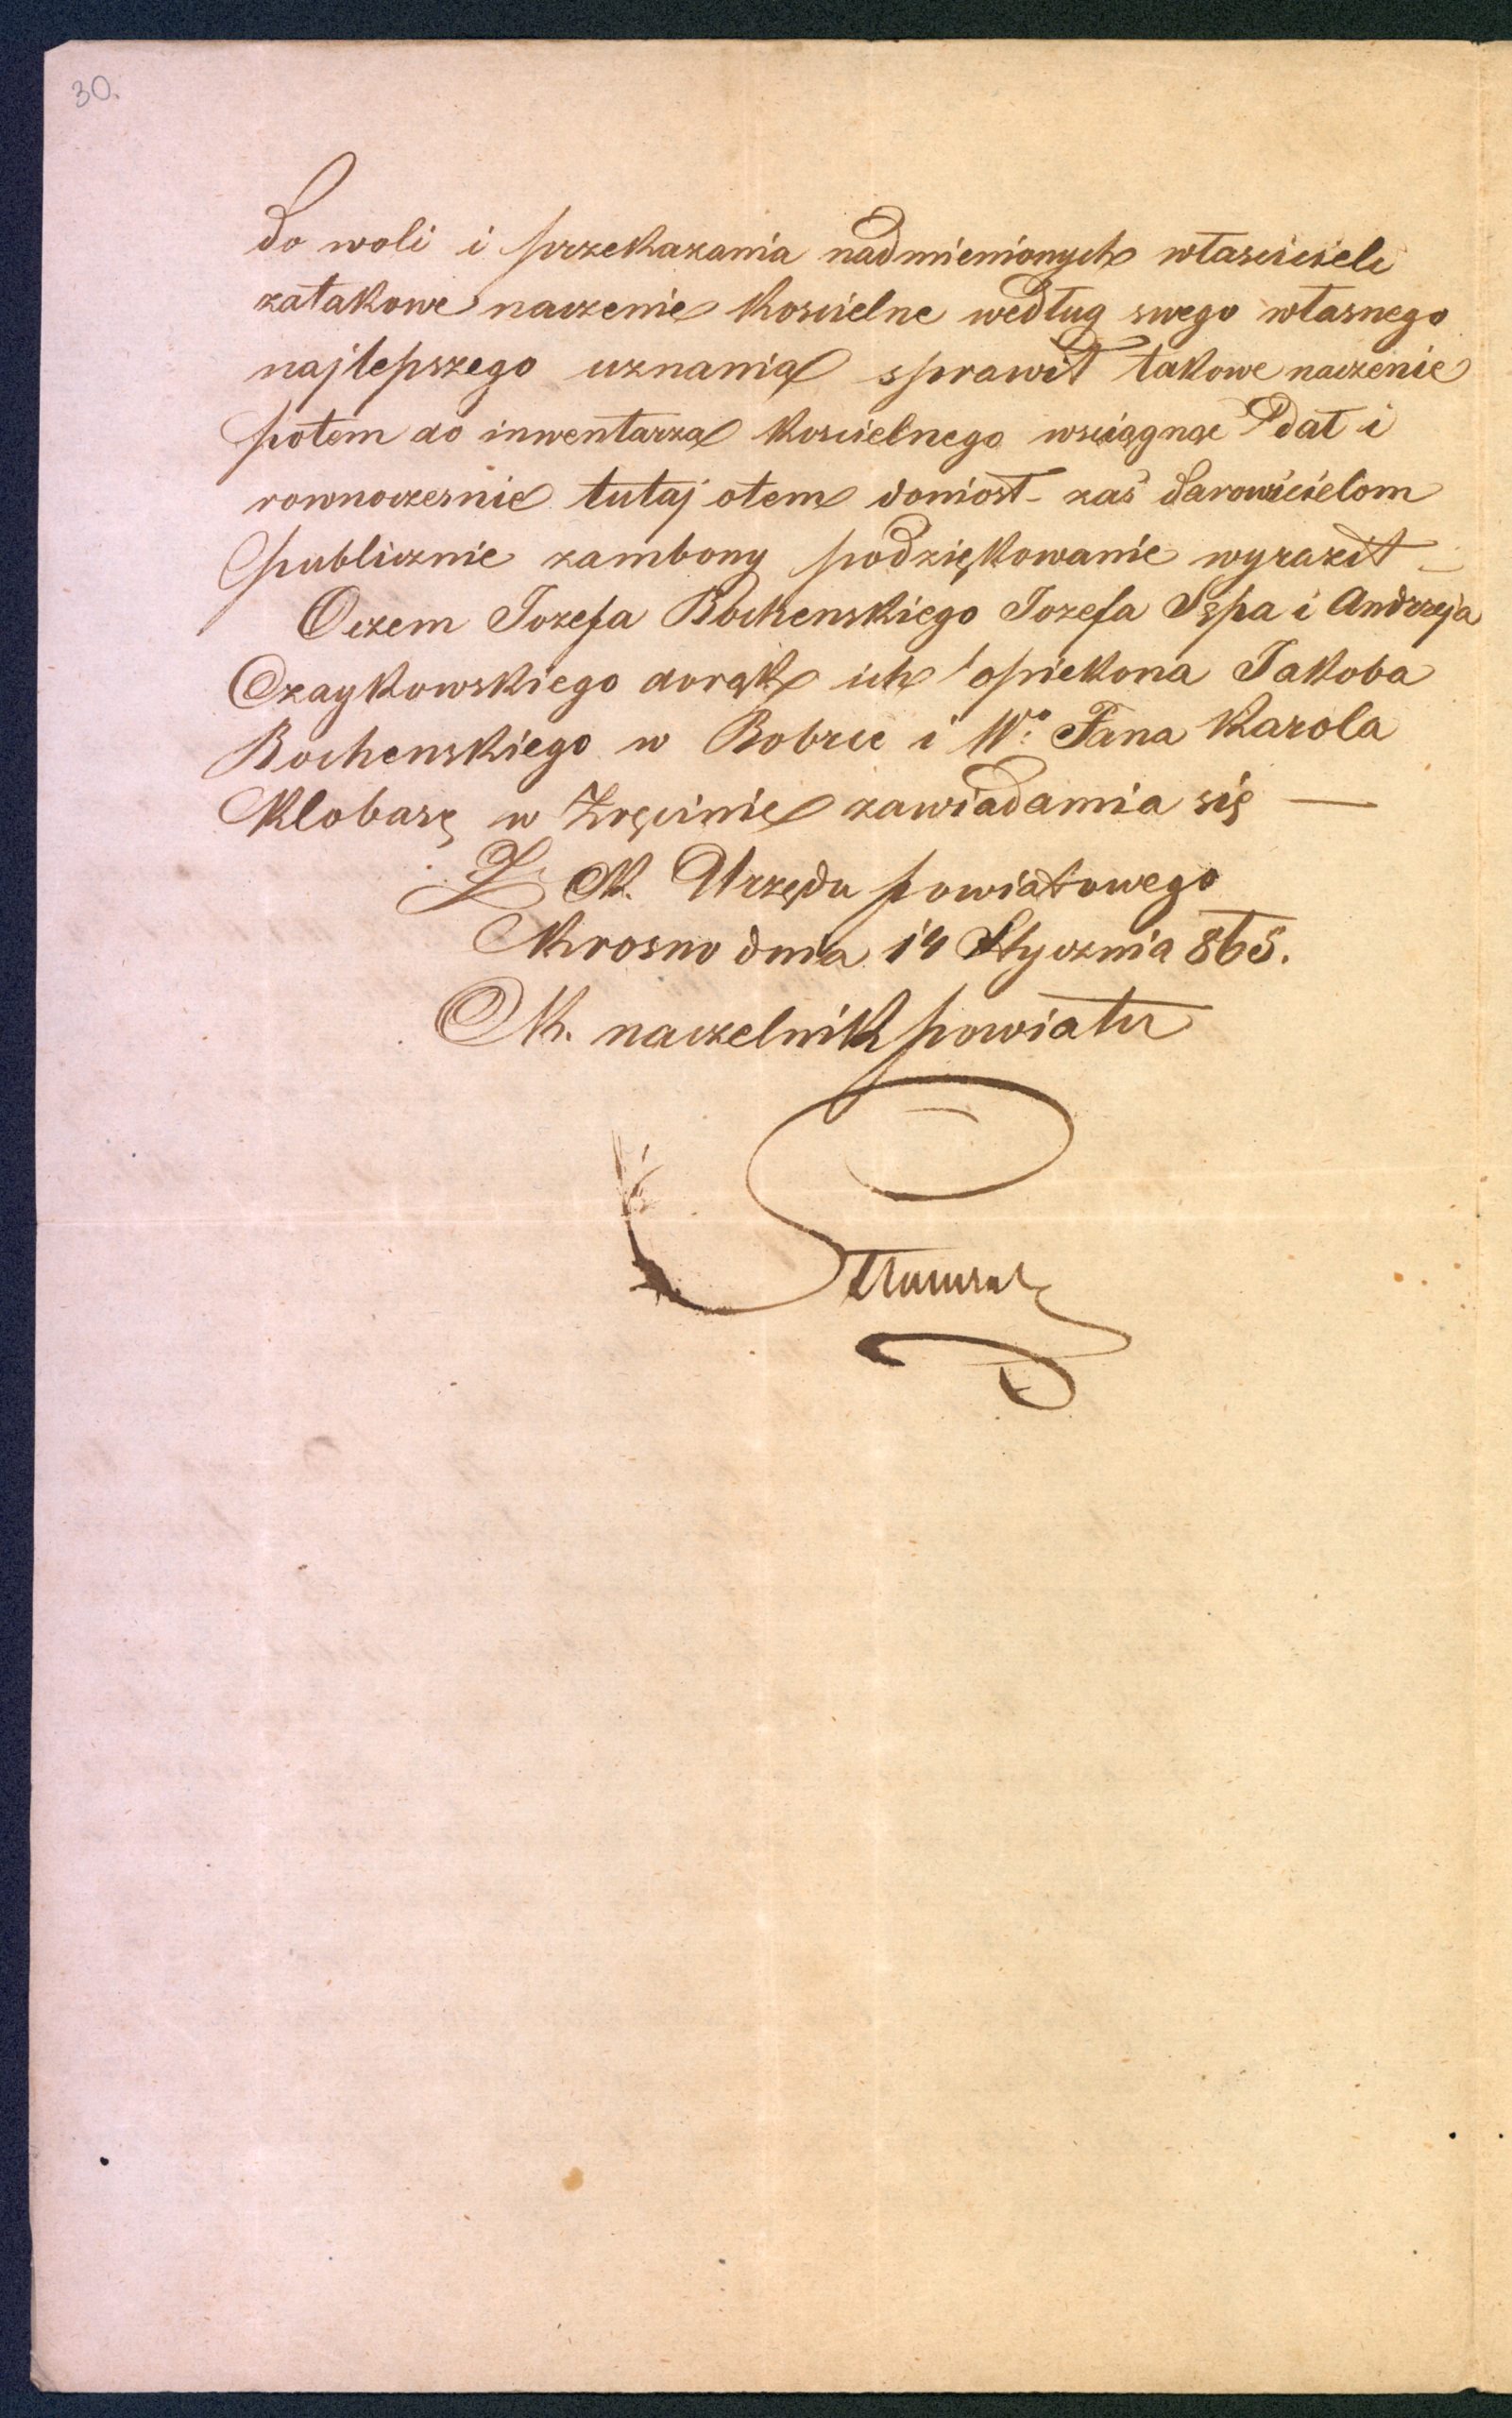 30.
do woli i przekazania nadmienionych własicieli
zatakowe naczenie koscielne według swego własnego
najlepszego uznania sprawił takowe naczenie
potem do inwentarza koscielnego wsciągnąc dał i
rownoczesnie tutaj otem doniosł - zaś darowicielom
publicznie zambony podziękowanie wyraził —
Oczem Jozefa Bochenskiego Jozefa Sępa i Andrzeja
Czaykowskiego dorąk ich opiekona Jakoba
Bochenskiego w Bobrce i Wo Pana Karola
Klobasę w Zręcinie zawiadamia się —
Z K. Urzędu powiatowego
Krosno dnia 14 Stycznia 865.
K. naczelnik powiatu